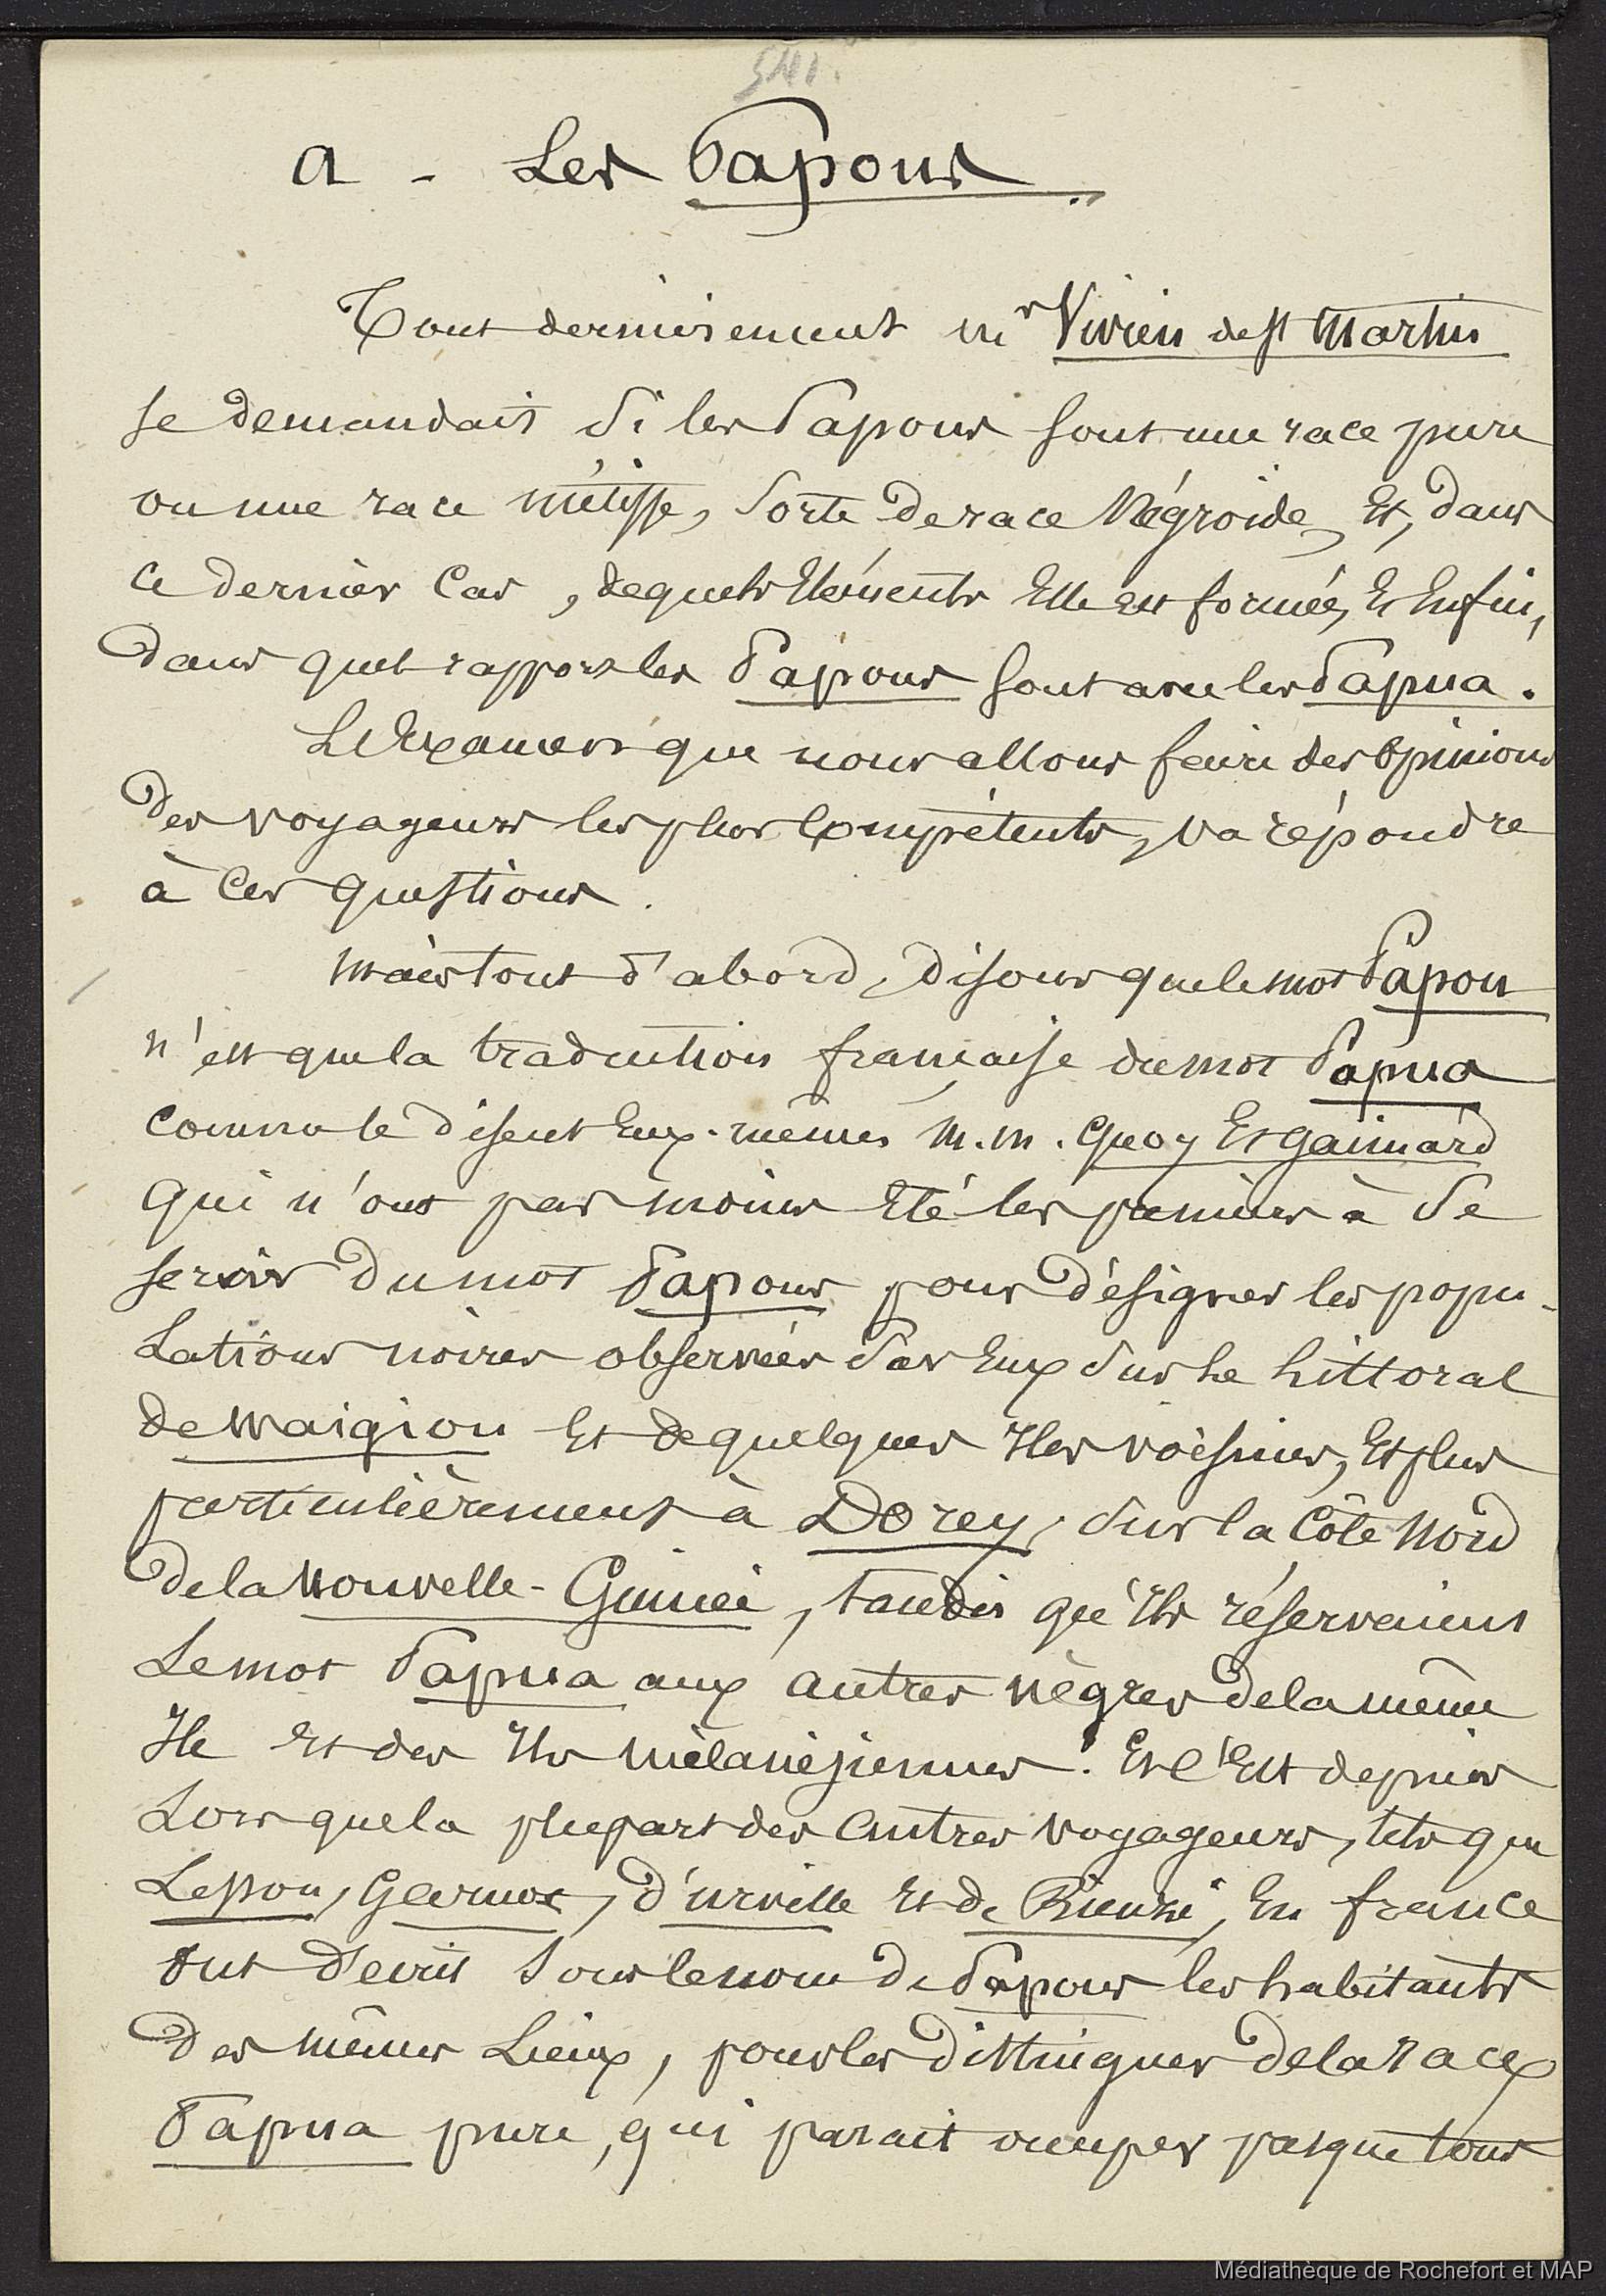 541.
A - Les Papous.
Tout dernièrement Mr Vivien de St Martin
se demandait si les Papous sont une race pure
ou une race métisse, sorte de race Négroïde, Et, dans
ce dernier Cas, de quels Eléments Elle est formée, Et Enfin,
dans quel rapport les Papous sont avec les Papua.
L'Examen que nous allons faire des Opinions
des voyageurs les plus Compétents, va répondre
à Ces questions.
Mais tout d'abord, disons que le mot Papou
n'est que la traduction française du mot Papua
comme le disent Eux-mêmes M.M. Quoy Et Gaimard
qui n'ont pas moins Eté les premiers à se
servir du mot Papous pour désigner les popu-
lations noires observées par Eux sur le littoral
de Waigiou Et de quelques Iles voisines, Et plus
particulièrement à Dorey, sur la Côte Nord
de la Nouvelle-Guinée, tandis qu'ils réservaient
Le mot Papua aux autres nègres de la même
Ile Et des Iles mélanésiennes. Et C'Est depuis
Lors que la plupart des Autres voyageurs, tels que
Lesson, Garnot, d'Urville Et de Rienzi, En france
ont décrit sous le nom de Papous les habitants
des mêmes Lieux, pour les distinguer de la race
Papua pure, qui parait occuper presque tous
Médiathèque de Rochefort et MAP